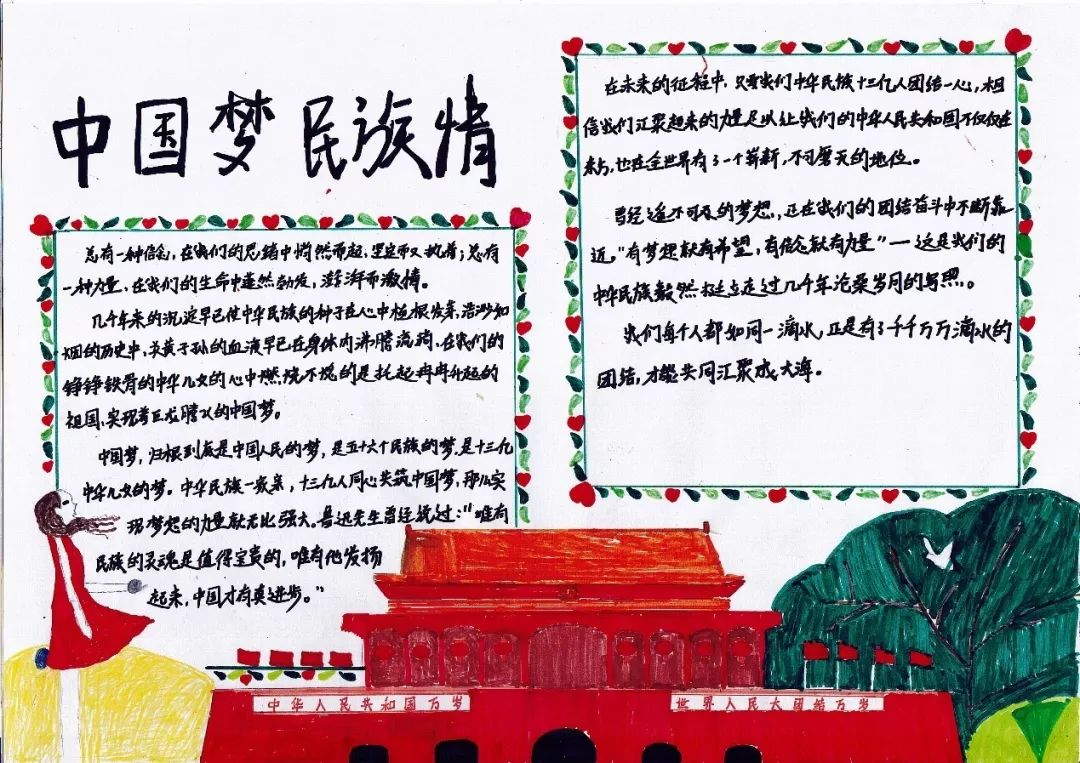 中国梦 民族情
总有一种信念,在我们的思绪中悄然而起,坚定而又执着;总有
一种力量,在我们的生命中蓬然勃发,澎湃而激情。
几千年来的沉淀早已使中华民族的种子在心中植根发芽,浩渺如
烟的历史中,炎黄子孙的血液早已在身体内沸腾流淌,在我们的
铮铮铁骨的中华儿女的心中燃烧不熄的是托起冉冉升起的
祖国,实现着巨龙腾飞的中国梦。
中国梦,归根到底是中国人民的梦,是五十六个民族的梦,是十三亿
中华儿女的梦。中华民族一家亲,十三亿人同心共筑中国梦,那么实
现梦想的力量就无比强大。鲁迅先生曾经说过:“唯有
民族的灵魂是值得宝贵的,唯有他发扬
起来,中国才有真进步。”
在未来的征程中,只要我们中华民族十三亿人团结一心,相
信我们汇聚起来的力量足以让我们的中华人民共和国不仅仅在
东方,也在全世界有了一个崭新,不可磨灭的地位。
曾经遥不可及的梦想,正在我们的团结奋斗中不断靠
近。“有梦想就有希望,有信念就有力量”一这是我们的
中华民族毅然挺立走过几千年沧桑岁月的写照。
我们每个人都如同一滴水,正是有了千千万万滴水的
团结,才能共同汇聚成大海。
中华人民共和国万岁
世界人民大团结万岁